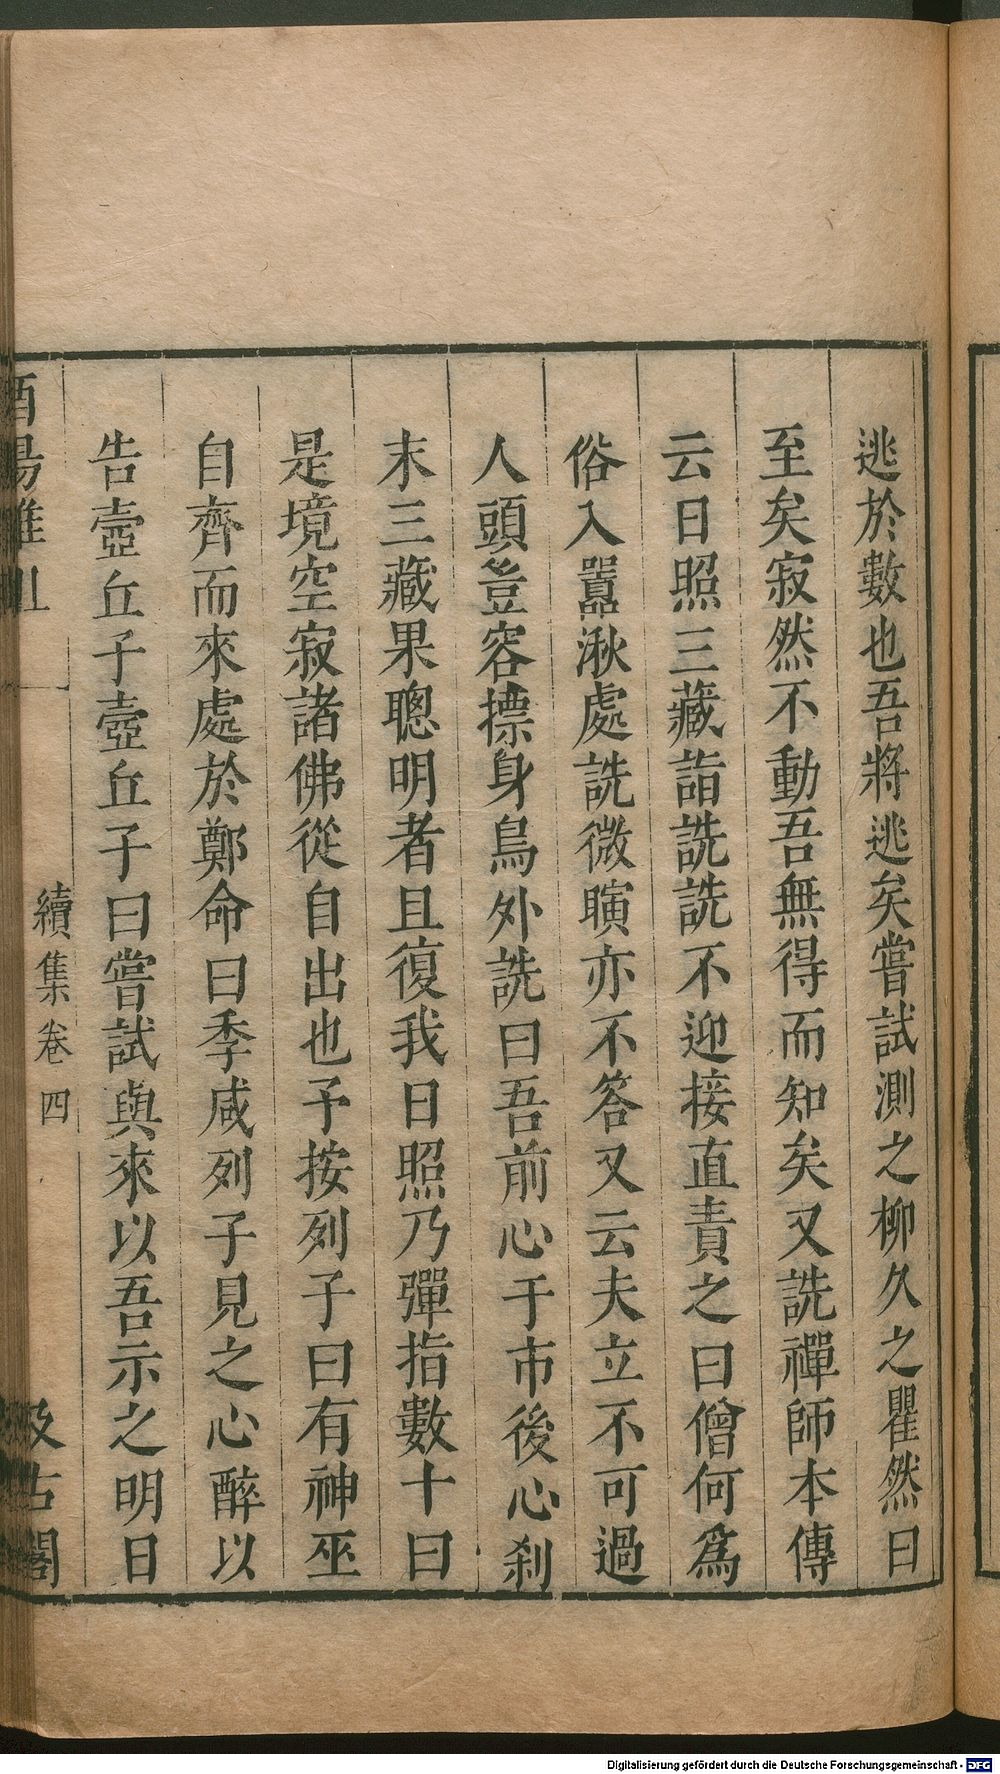 逃於數也吾將逃矣嘗試測之柳久之瞿然曰
至矣寂然不動吾無得而知矣又詵禪師本傳
云日照三藏詣詵詵不迎接直責之曰僧何爲
俗入囂湫處詵微瞚亦不答又云夫立不可過
人頭豈容摽身鳥外詵曰吾前心于市後心刹
末三藏果聰明者且復我日照乃彈指數十曰
是境空寂諸佛從自出也予按列子曰有神巫
自齊而來處於鄭命曰季咸列子見之心醉以
告壺丘子壺丘子曰嘗試與來以吾示之明日
酉陽雜俎 續集卷四 汲古閣
Digitalisierung gefördert durch die Deutsche Forschungsgemeinschaft - DFG